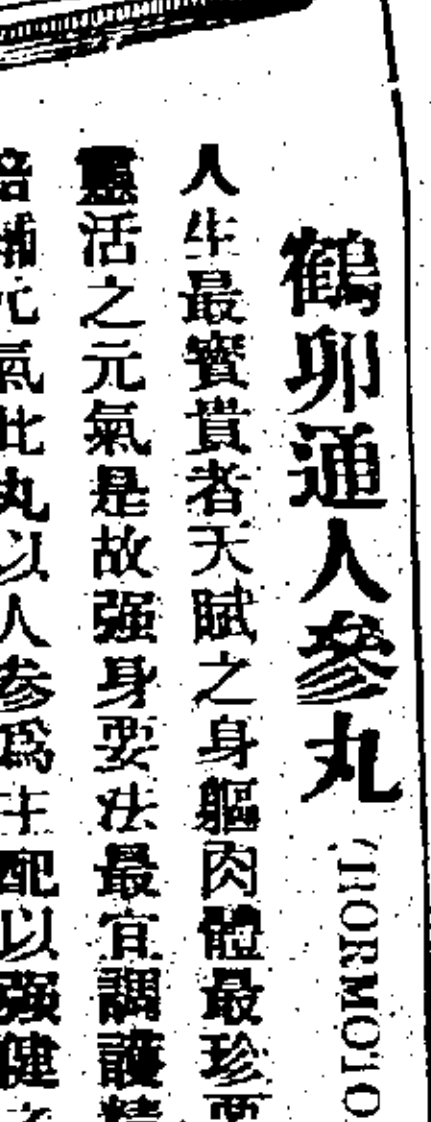 鶴卵通人參丸 (HORMOTO
人生最寶貴者天賦之身軀肉體最珍要
靈活之元氣是故强身要法最宜調護精
培補元氣此丸以人参爲主配以强健之